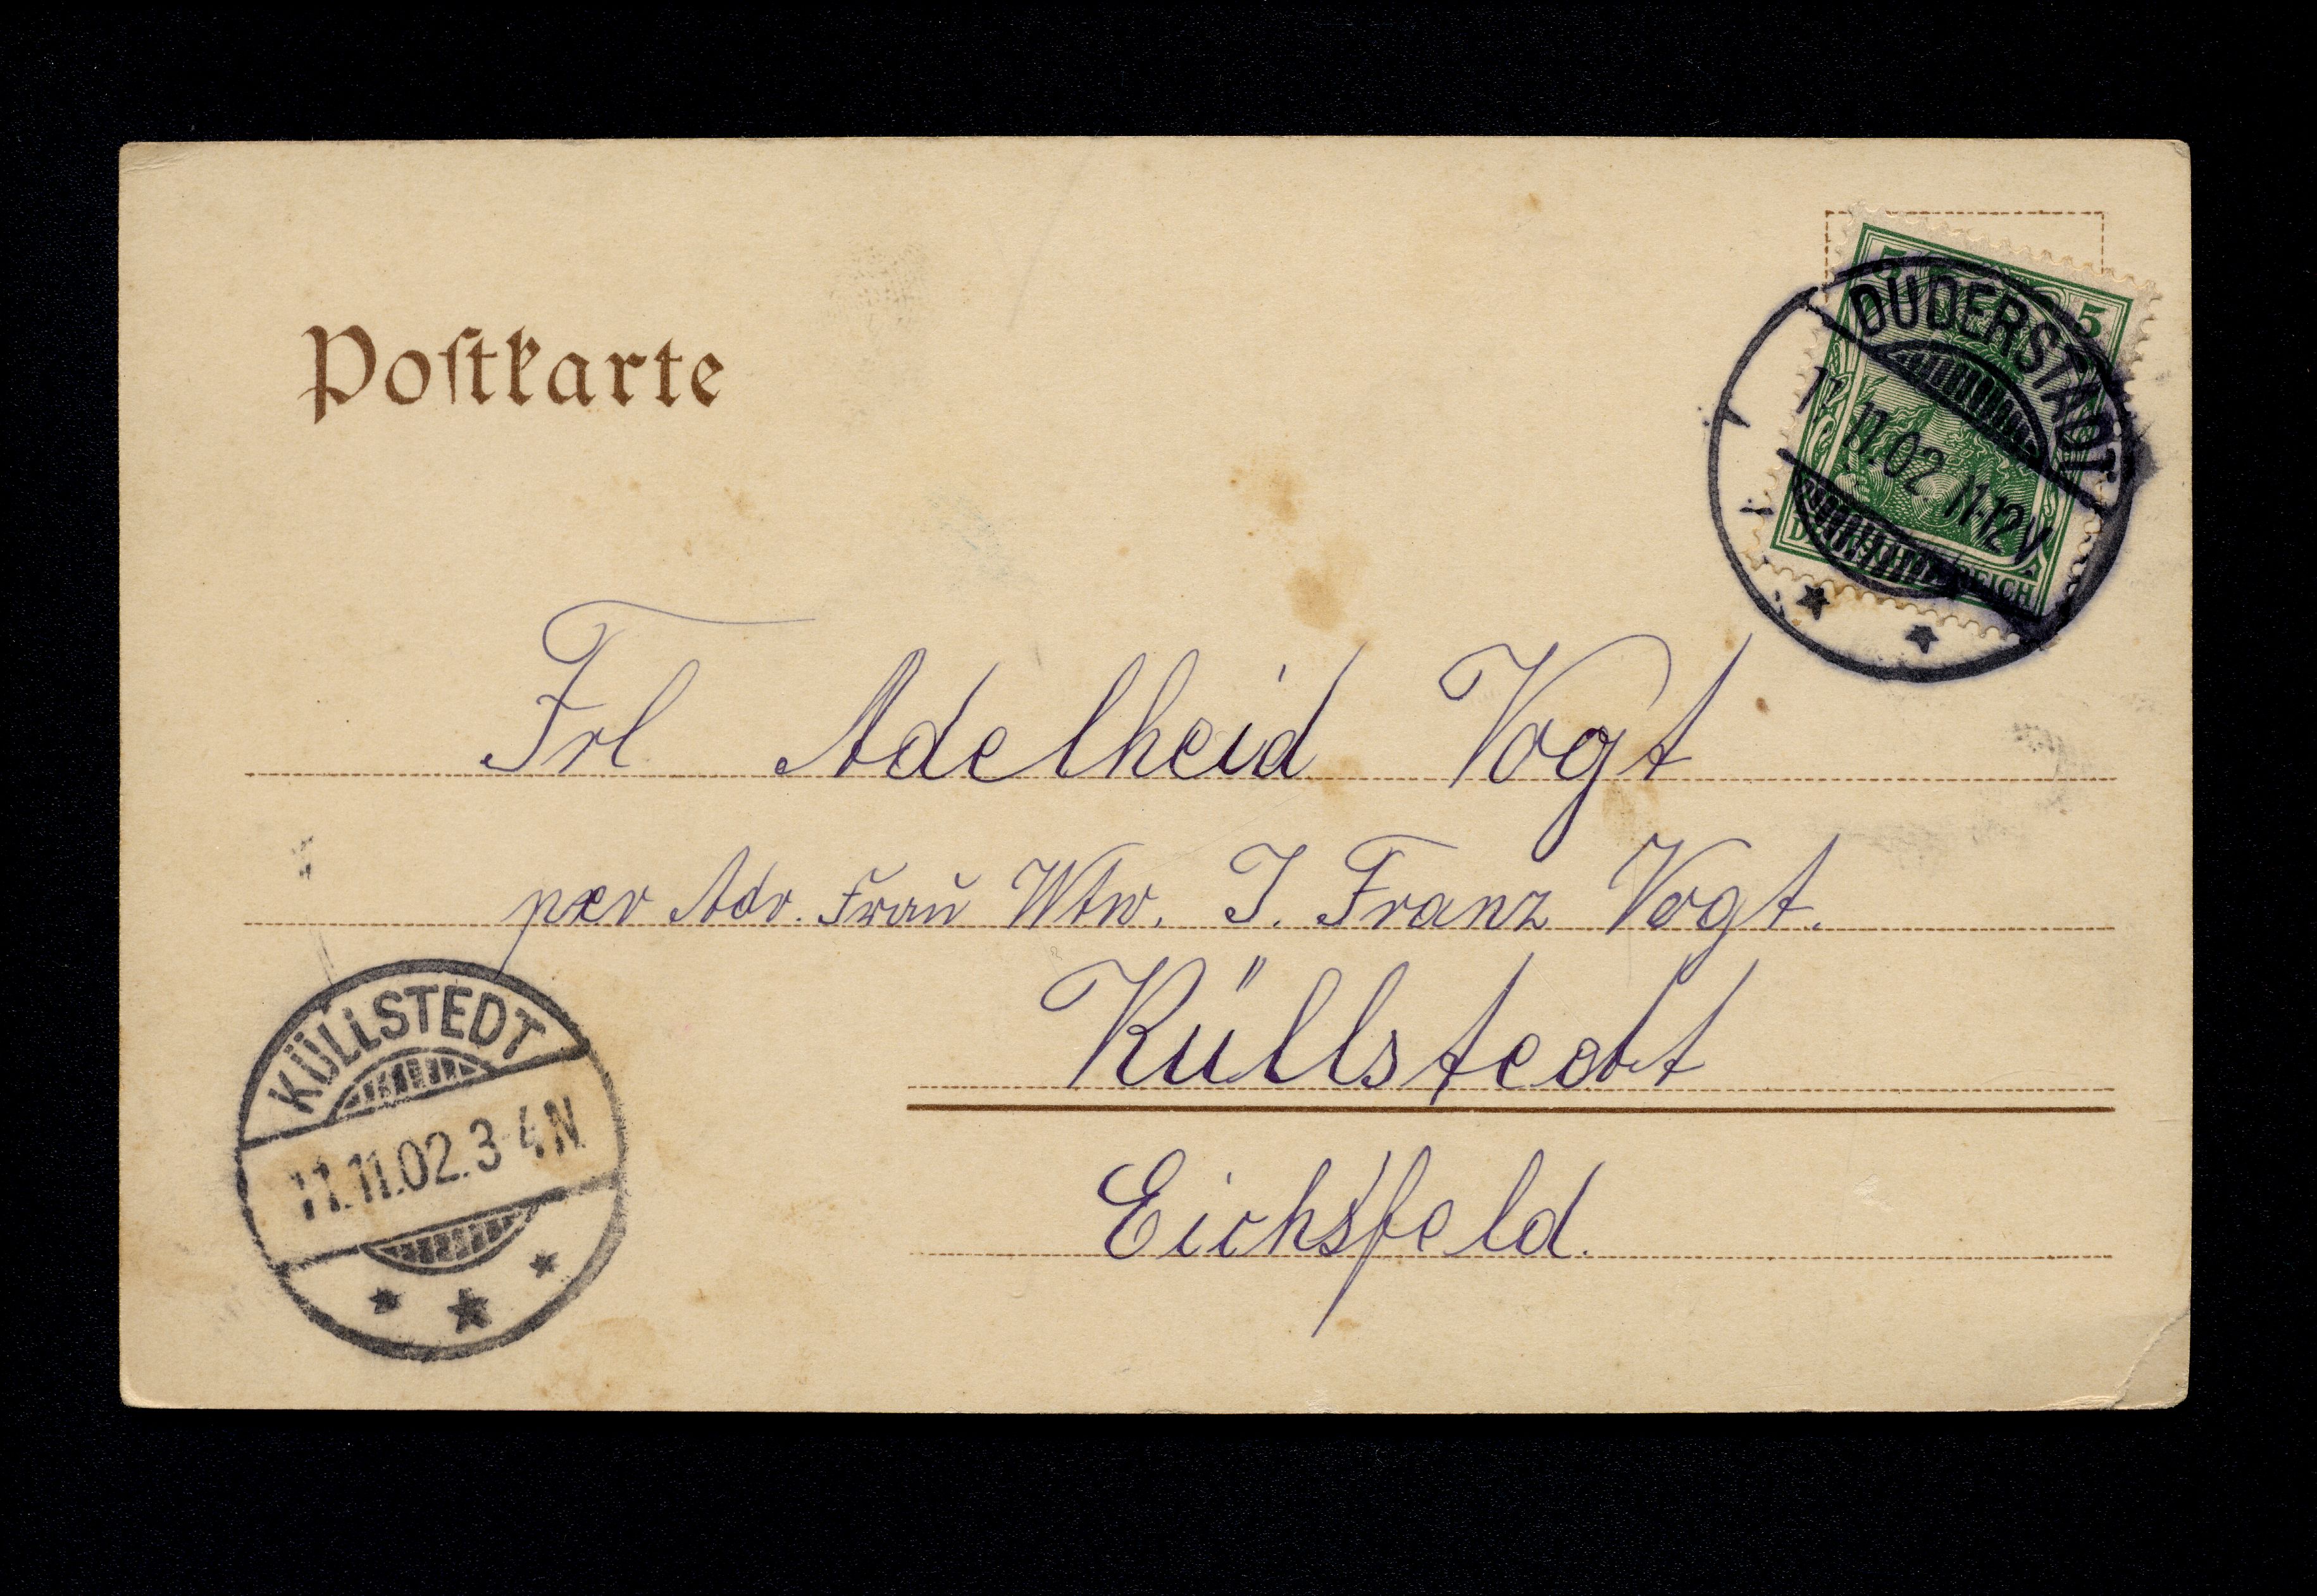 Postkarte
5 5
DUDERSTADT
11.11.02. 11-12V
REICH
Frl Adelheid Vogt
per Adr. Frau Wtw. J. Franz Vogt.
Küllstedt
Eichsfeld.
KÜLLSTEDT
11.11.02.3-4N